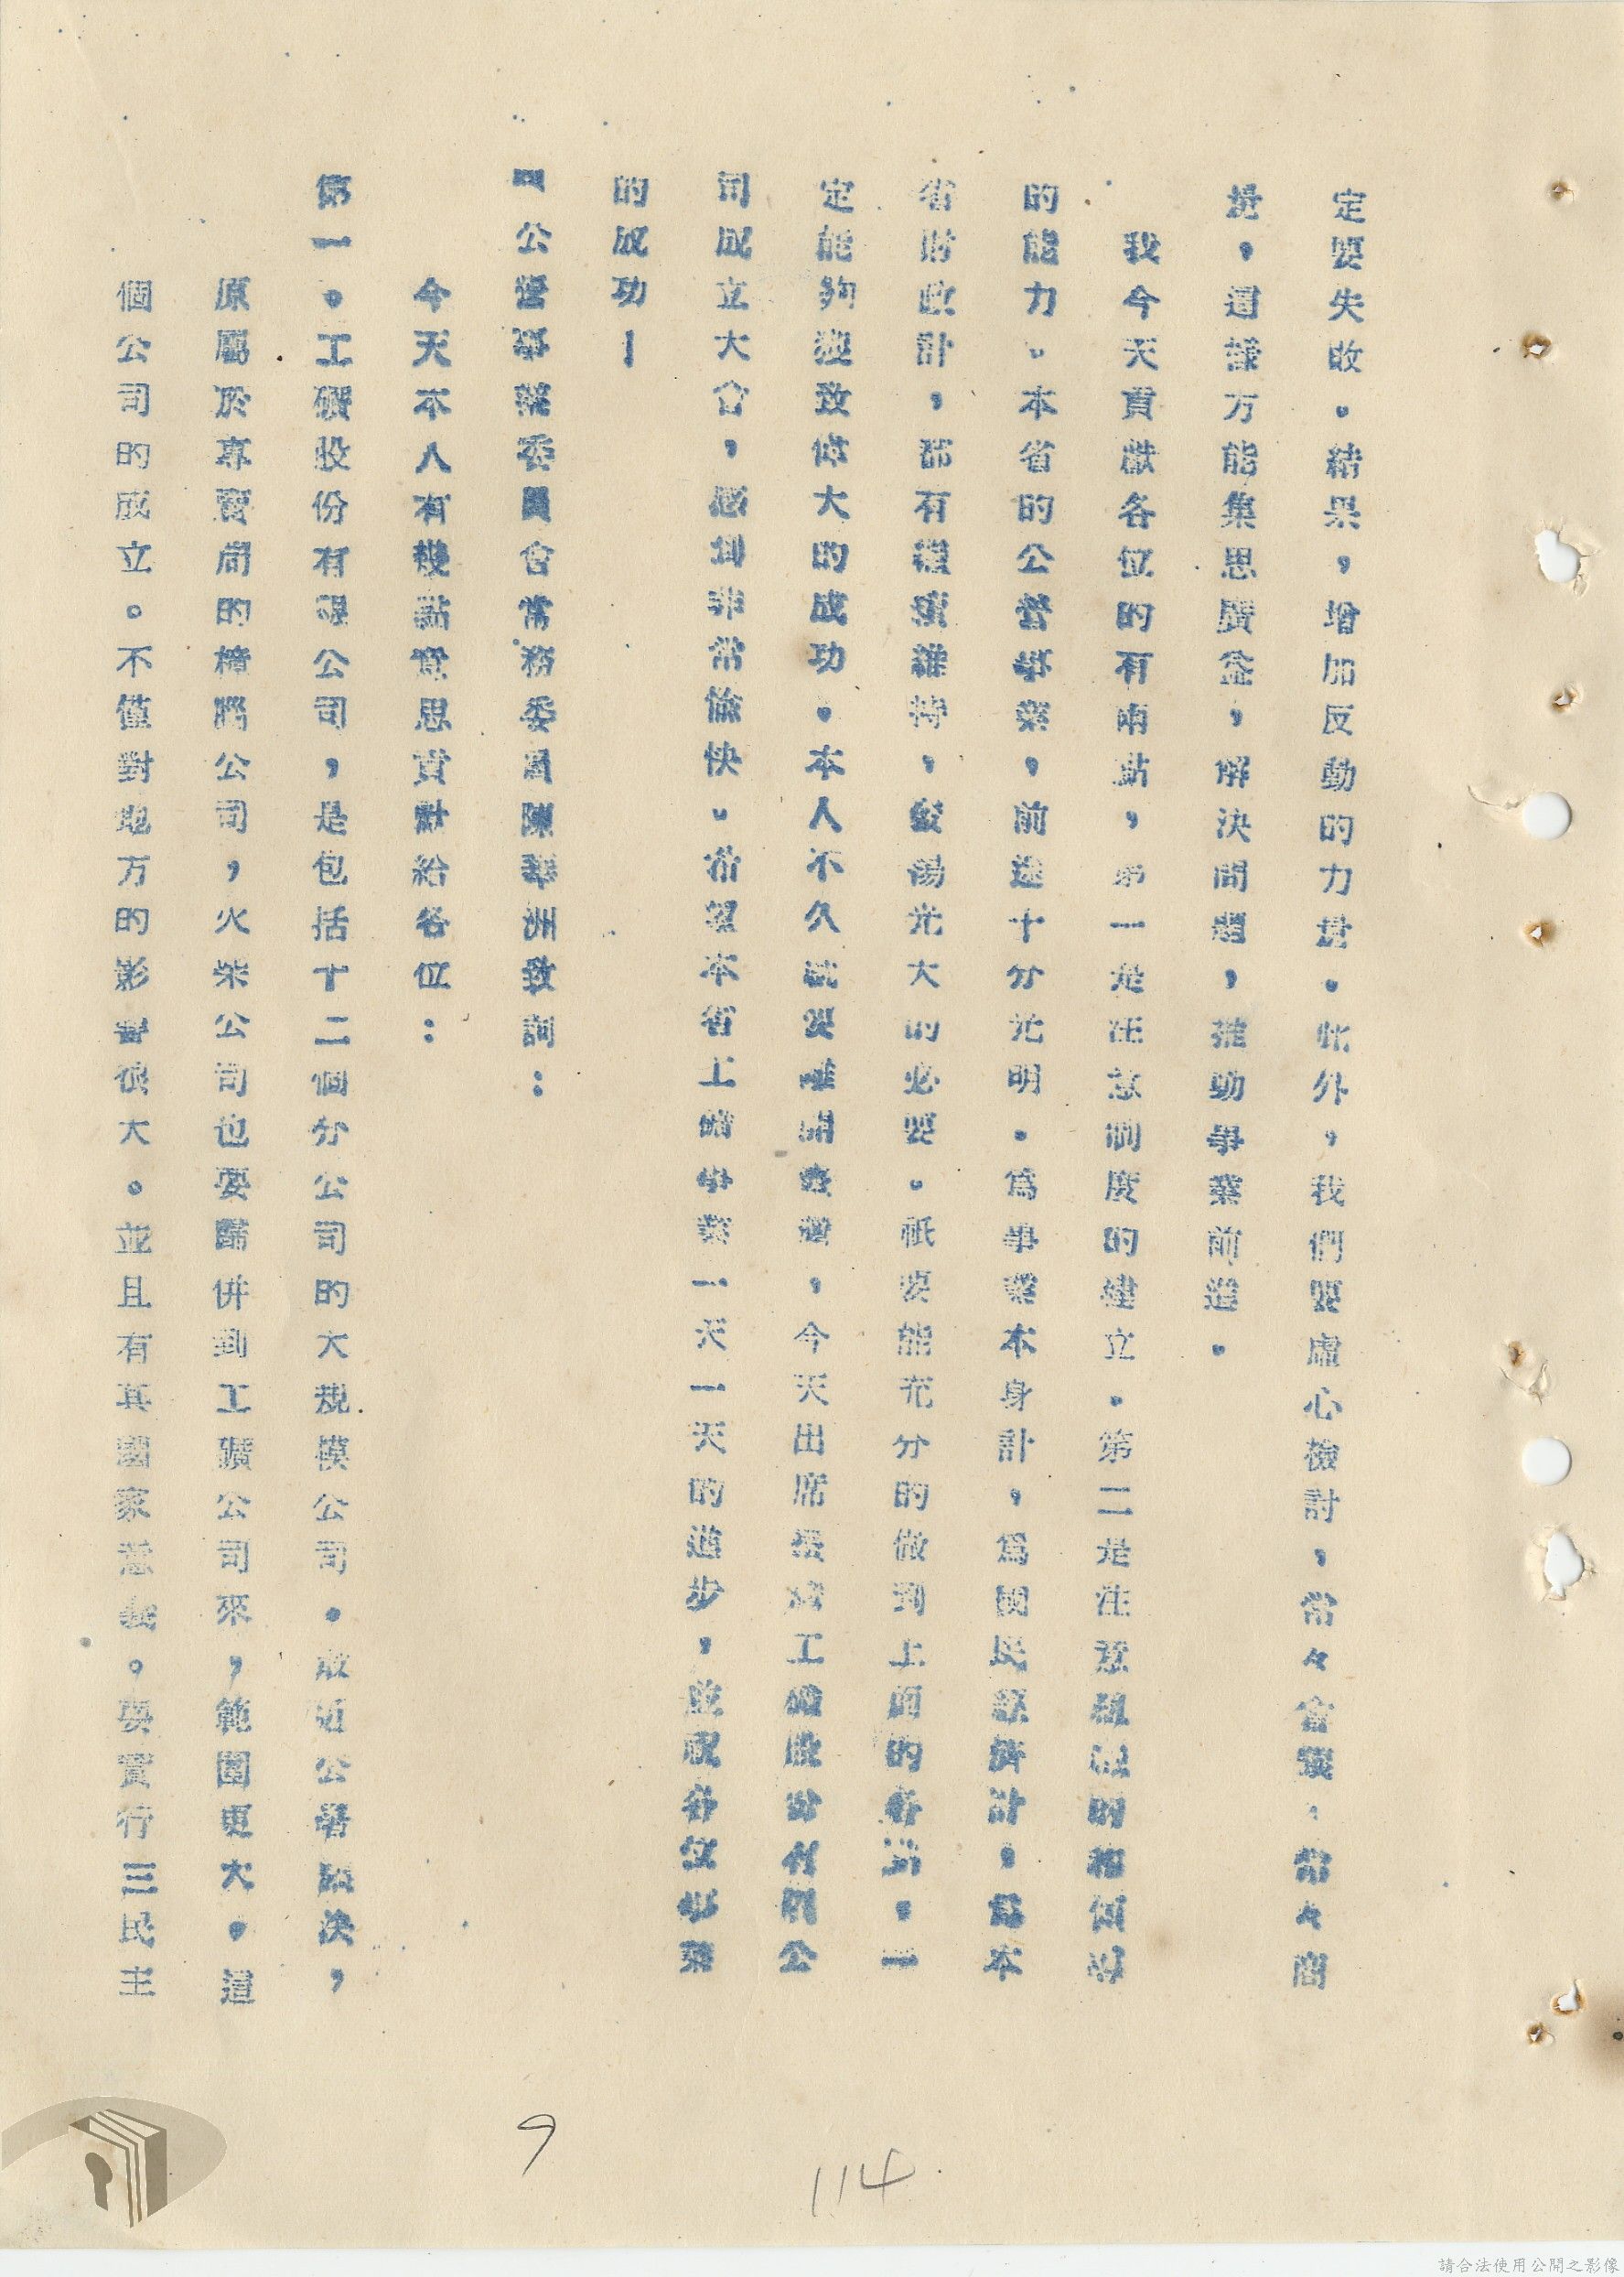 定要失收。結果，增加反動的力量。此外，我們要虛心檢討，常々會議，常々商
量，這樣方能集思廣益，解決問題，推動事業前進。
我今天貢獻各位的有兩點，第一是注意制度的建立。第二是注意組織的和領導
的能力。本省的公營事業，前途十分光明。為事業本身計，為國民經濟計，為本
省財政計，都有繼續維持，發揚光大的必要。祇要能充分的做到上面的各點，一
定能夠獲致偉大的成功。本人不久就要離開臺灣，今天出席臺灣工礦股份有限公
司成立大會，感到非常愉快。希望本省工礦事業一天一天的進步，並祝各位事業
的成功！
公營事業委員會常務委員陳華洲致詞：
今天本人有幾點意思貢獻給各位：
第一。工礦股份有限公司，是包括十二個分公司的大規模公司。最近公署議決，
原屬於專賣局的樟腦公司，火柴公司也要歸併到工礦公司來，範圍更大。這
個公司的成立。不僅對地方的影響很大。並且有其國家意義。要實行三民主
9
114
請合法使用公開之影像